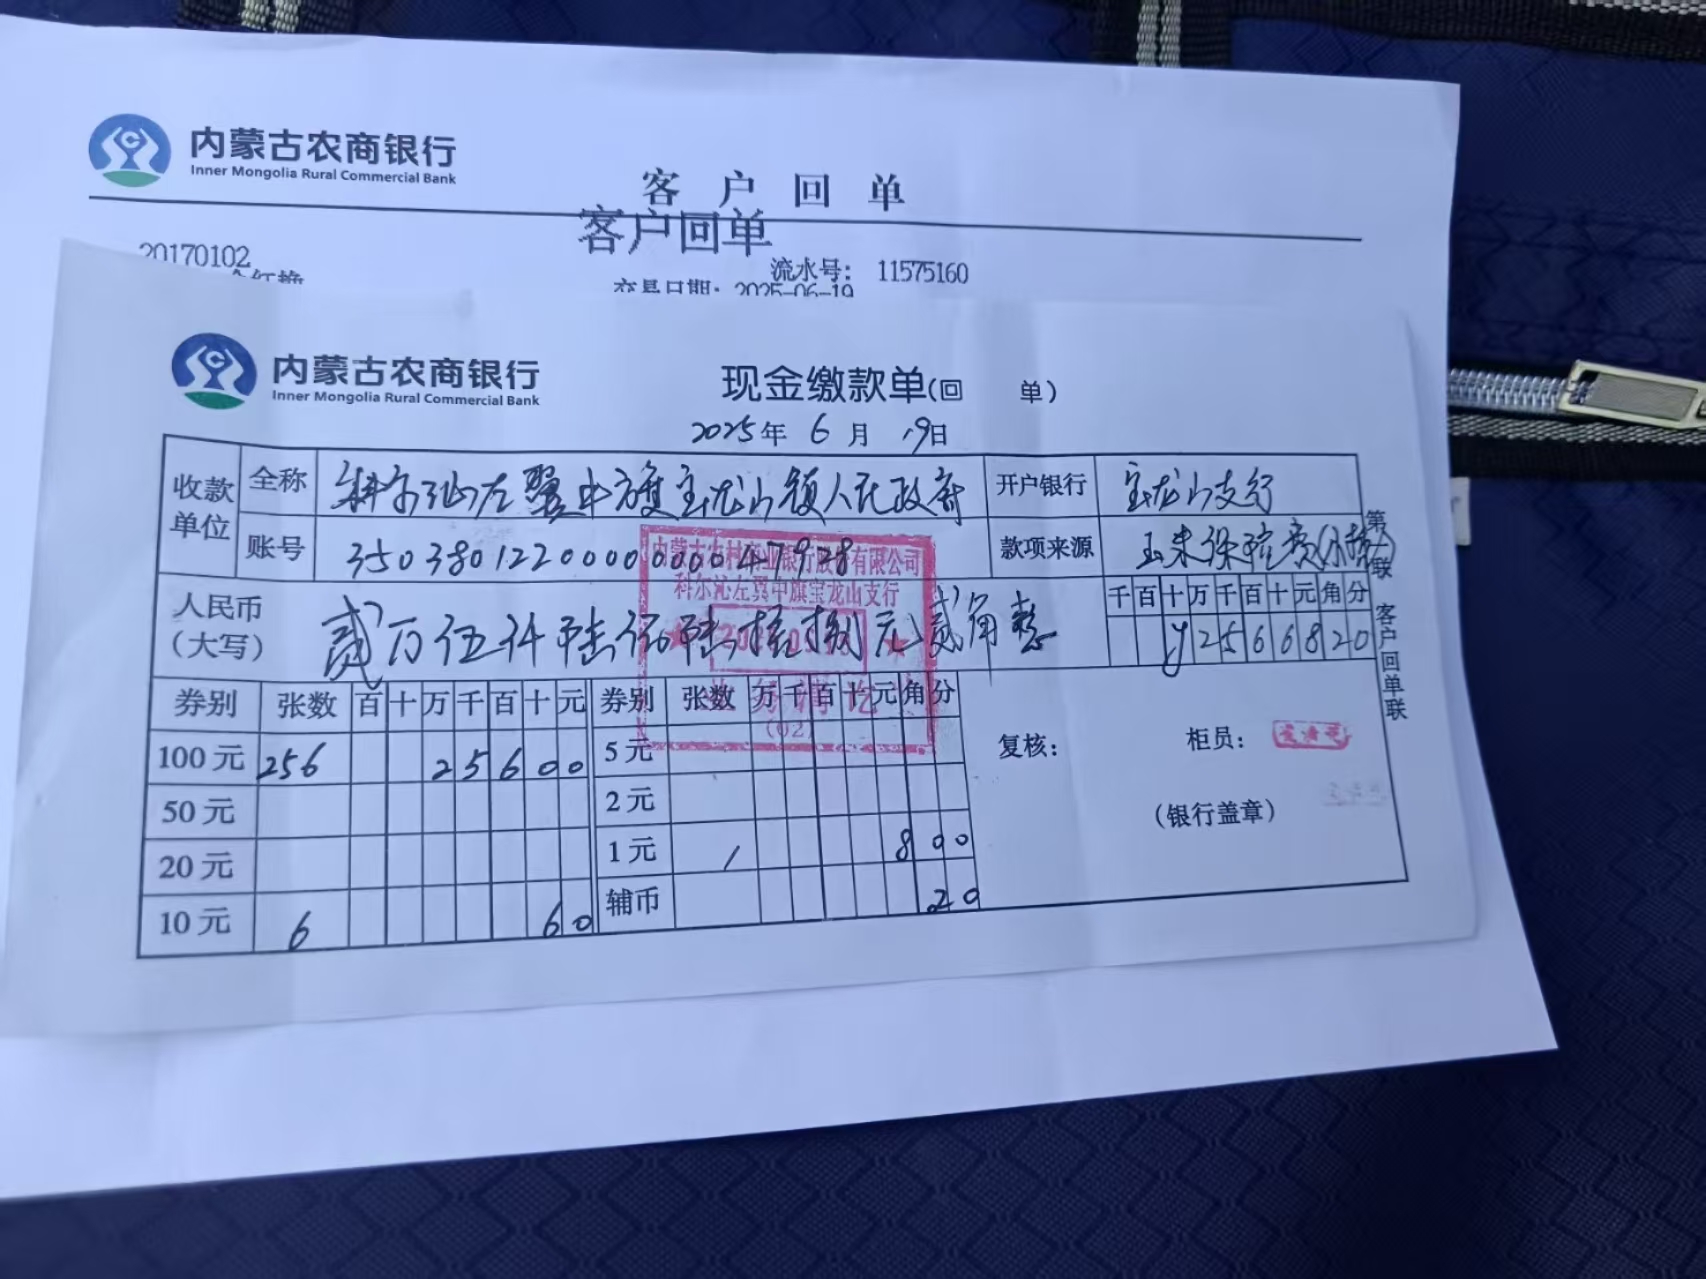 内蒙古农商银行
Inner Mongolia Rural Commercial Bank
客户回单
客户回单
20170102
流水号: 11575160
交易日期: 2025-06-19
内蒙古农商银行
Inner Mongolia Rural Commercial Bank
现金缴款单(回 单)
2025年 6 月 19日
收款单位 全称 科尔沁左翼中旗宝龙山镇人民政府 开户银行 宝龙山支行
账号 款项来源 玉米保险费
内蒙古农村商业银行股份有限公司
科尔沁左翼中旗宝龙山支行
(02)
人民币(大写) 贰万伍仟陆佰陆拾捌元贰角整 千百十万千百十元角分
¥2566820
券别 张数 百十万千百十元 券别 张数 万千百十元角分
100元 256 25600 5元
50元 2元
20元 1元 1 800
10元 6 60 辅币 20
复核: 柜员:
(银行盖章)
第一联 客户回单联